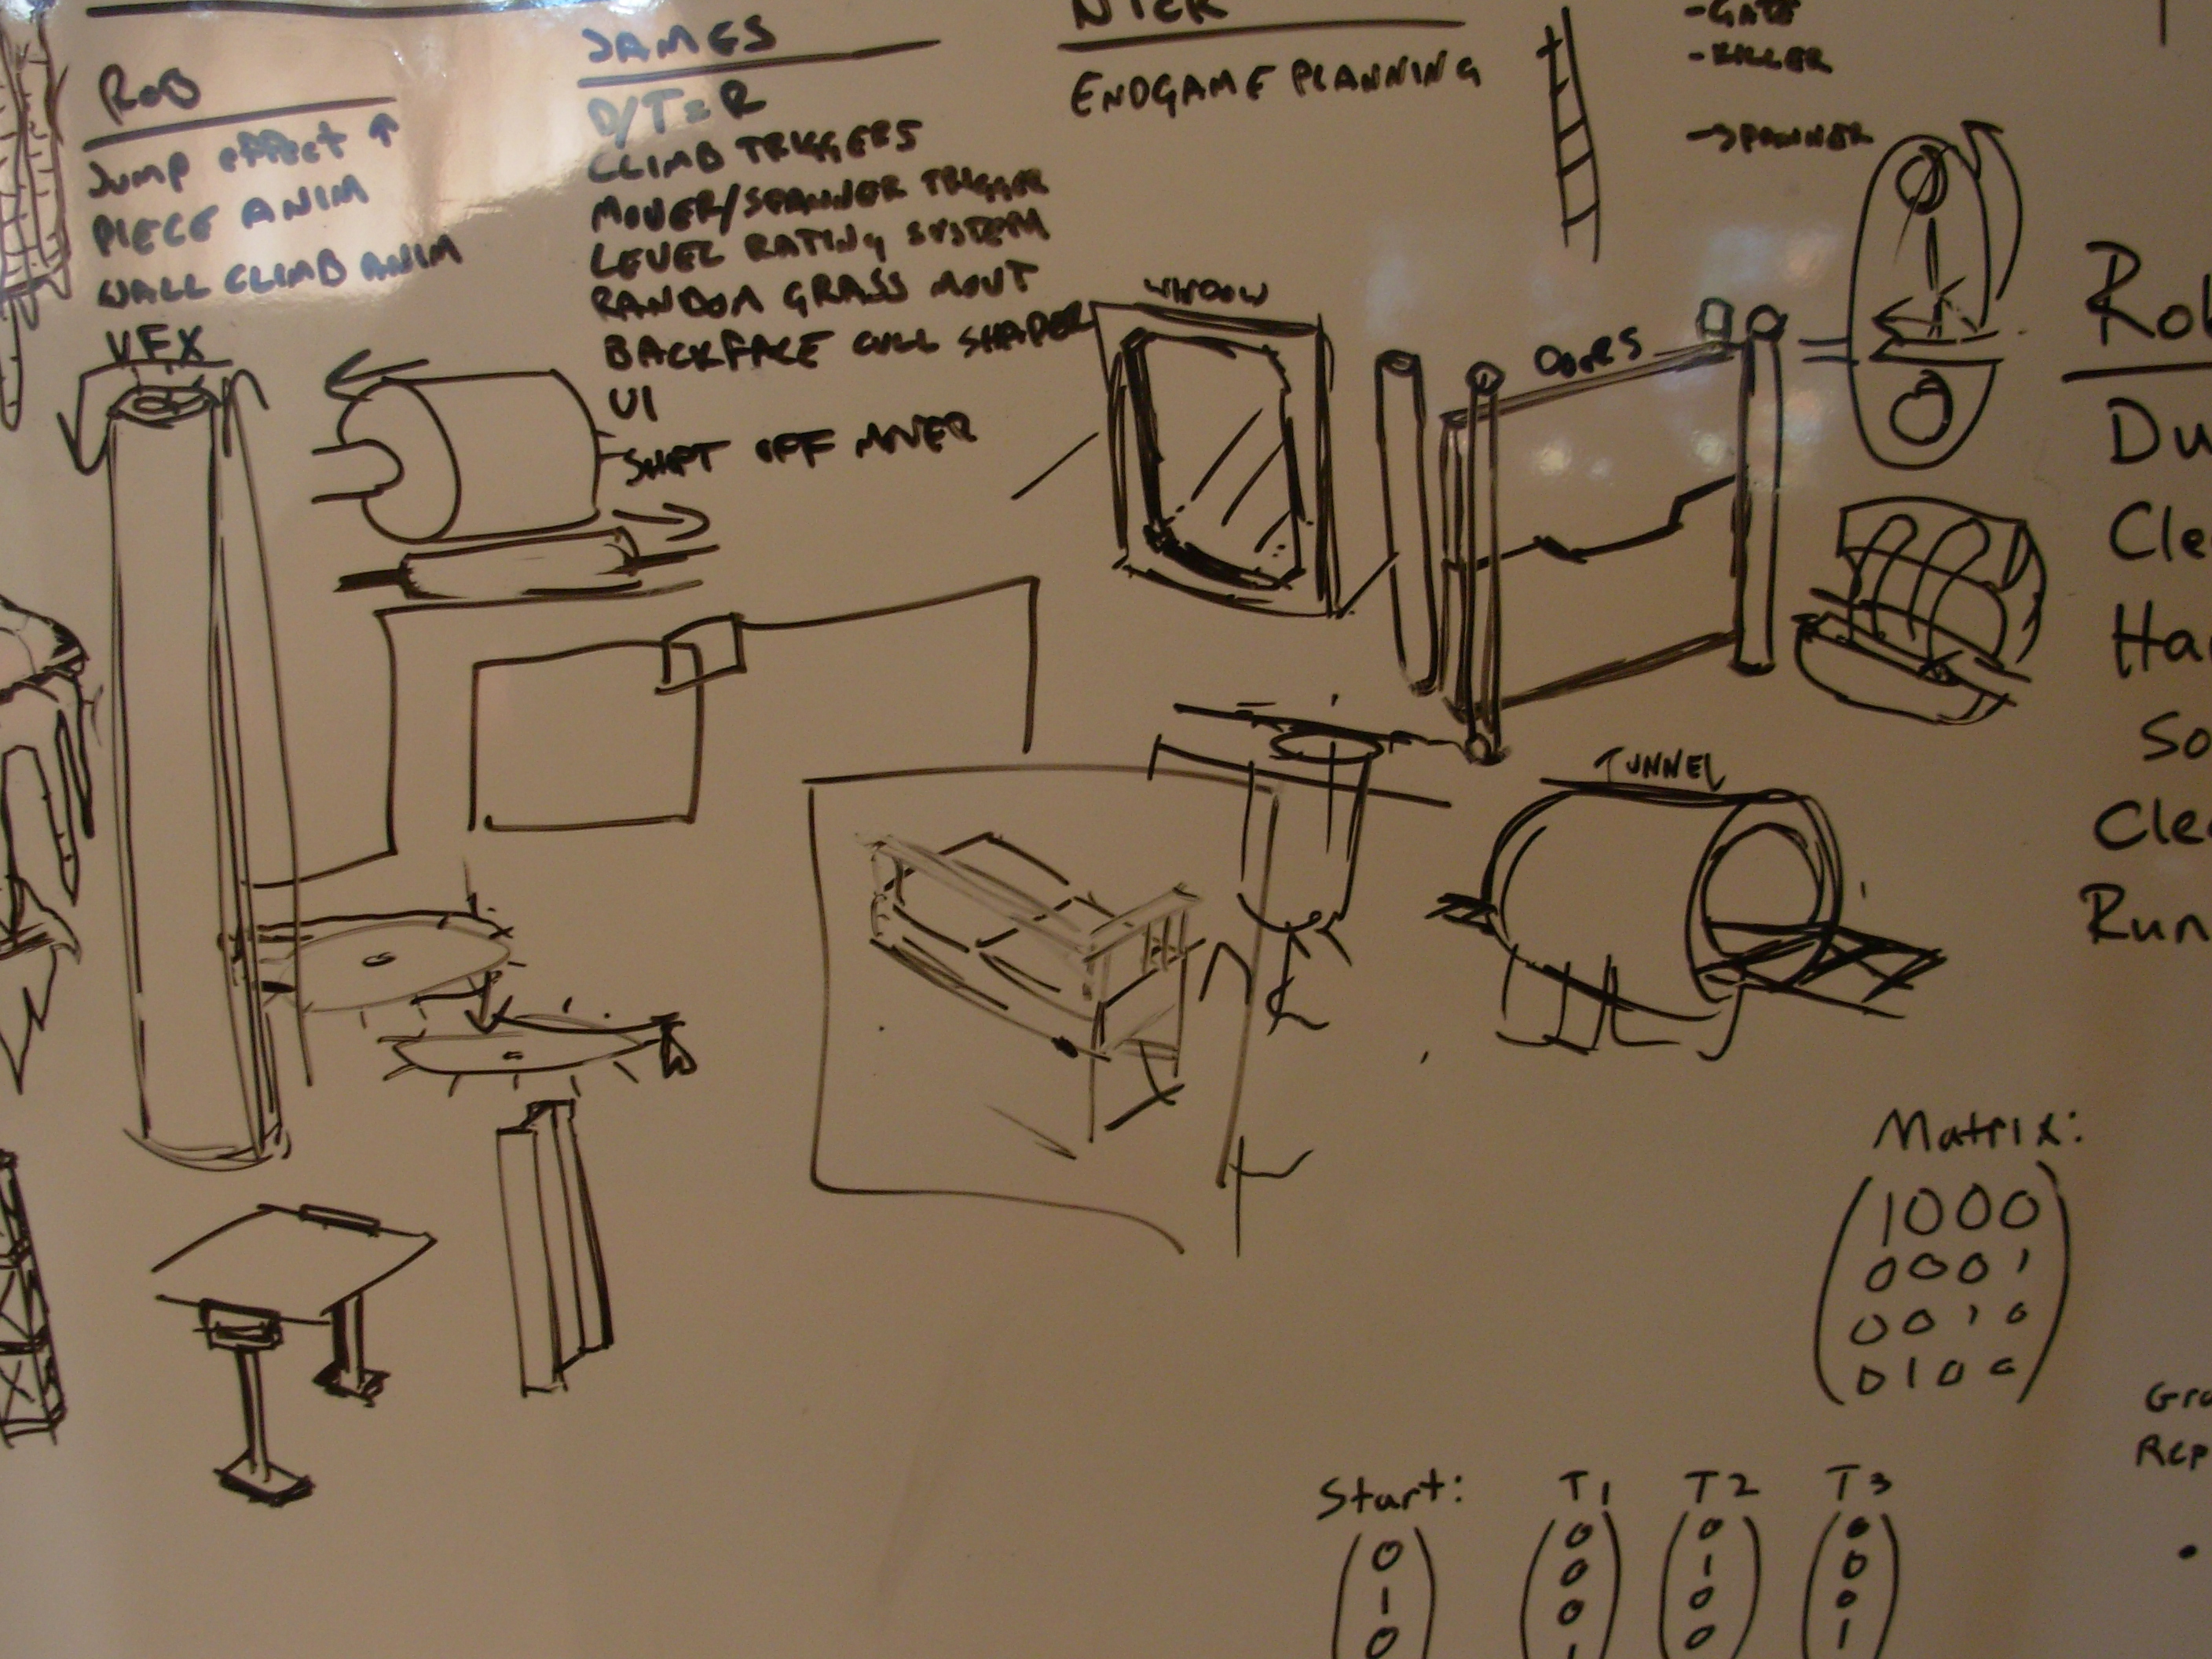 ROB
Jump effect ↑
PIECE ANIM
WALL CLIMB ANIM
VFX
JAMES
D/T=R
CLIMB TRIGGERS
MOVER/SPANNER TRIGGER
LEVEL RATING SYSTEM
RANDOM GRASS MOUT
BACKFACE CULL SHADER
UI
SHIFT OFF MOVER
NICK
ENDGAME PLANNING
-GATE
-KILLER
→SPANNER
WINDOW
DOORS
TUNNEL
Rob
Du
Clea
Har
So
Clea
Run
Matrix:
1000
0001
0010
0100
Gro
Rep
Start: T1 T2 T3
0 0 0 0
1 0 1 0
0 0 0 0
1 0 1